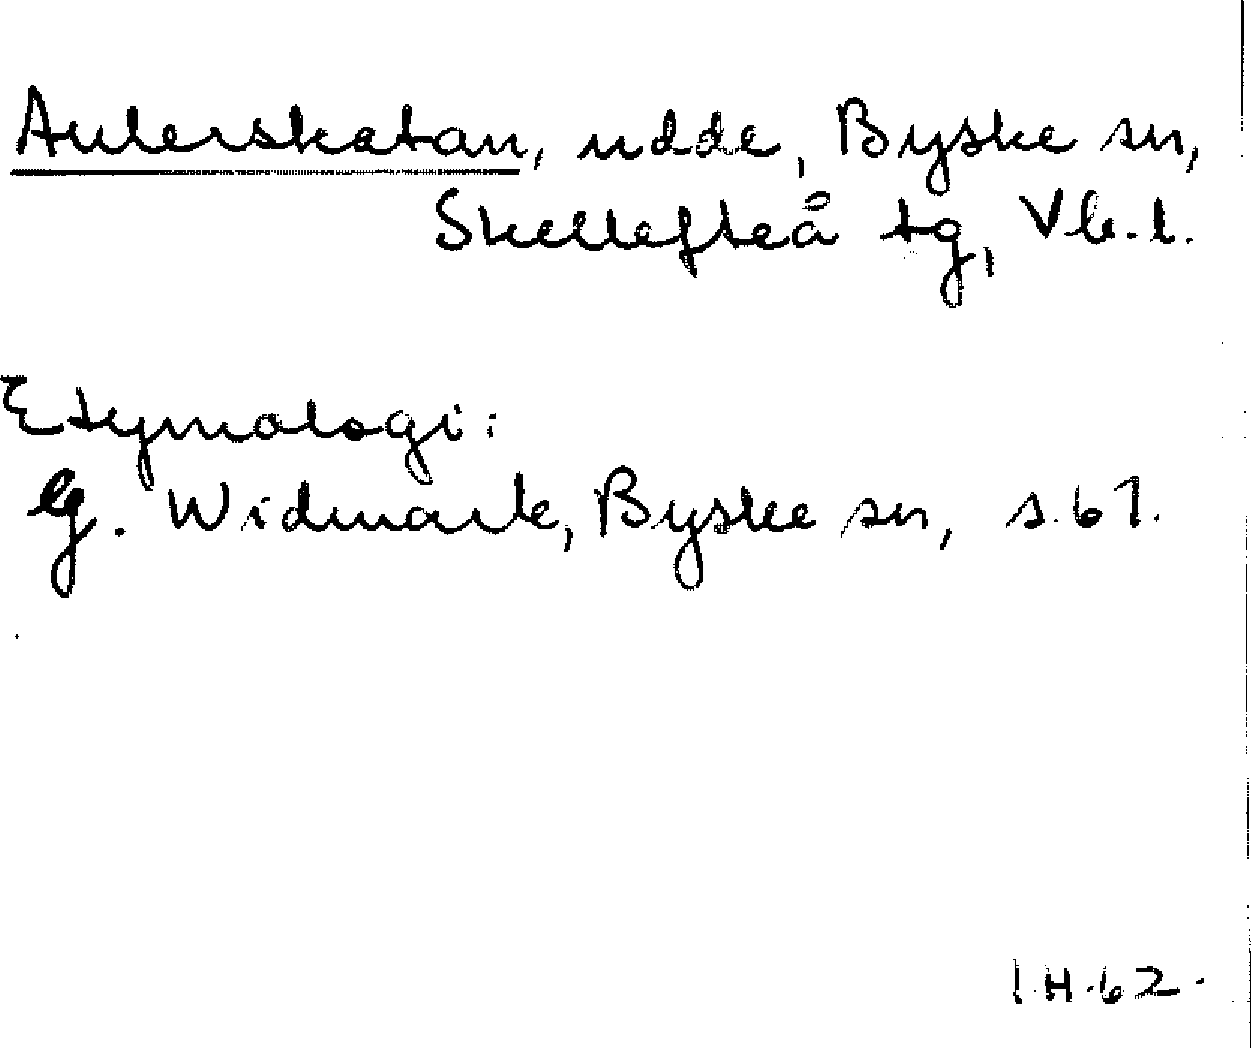 Aulerskatan, udde, Byske sn,
Skellefteå tg, Vb. l.
Etymologi:
G. Widmark, Byske sn, s. 61.
I H. 62.